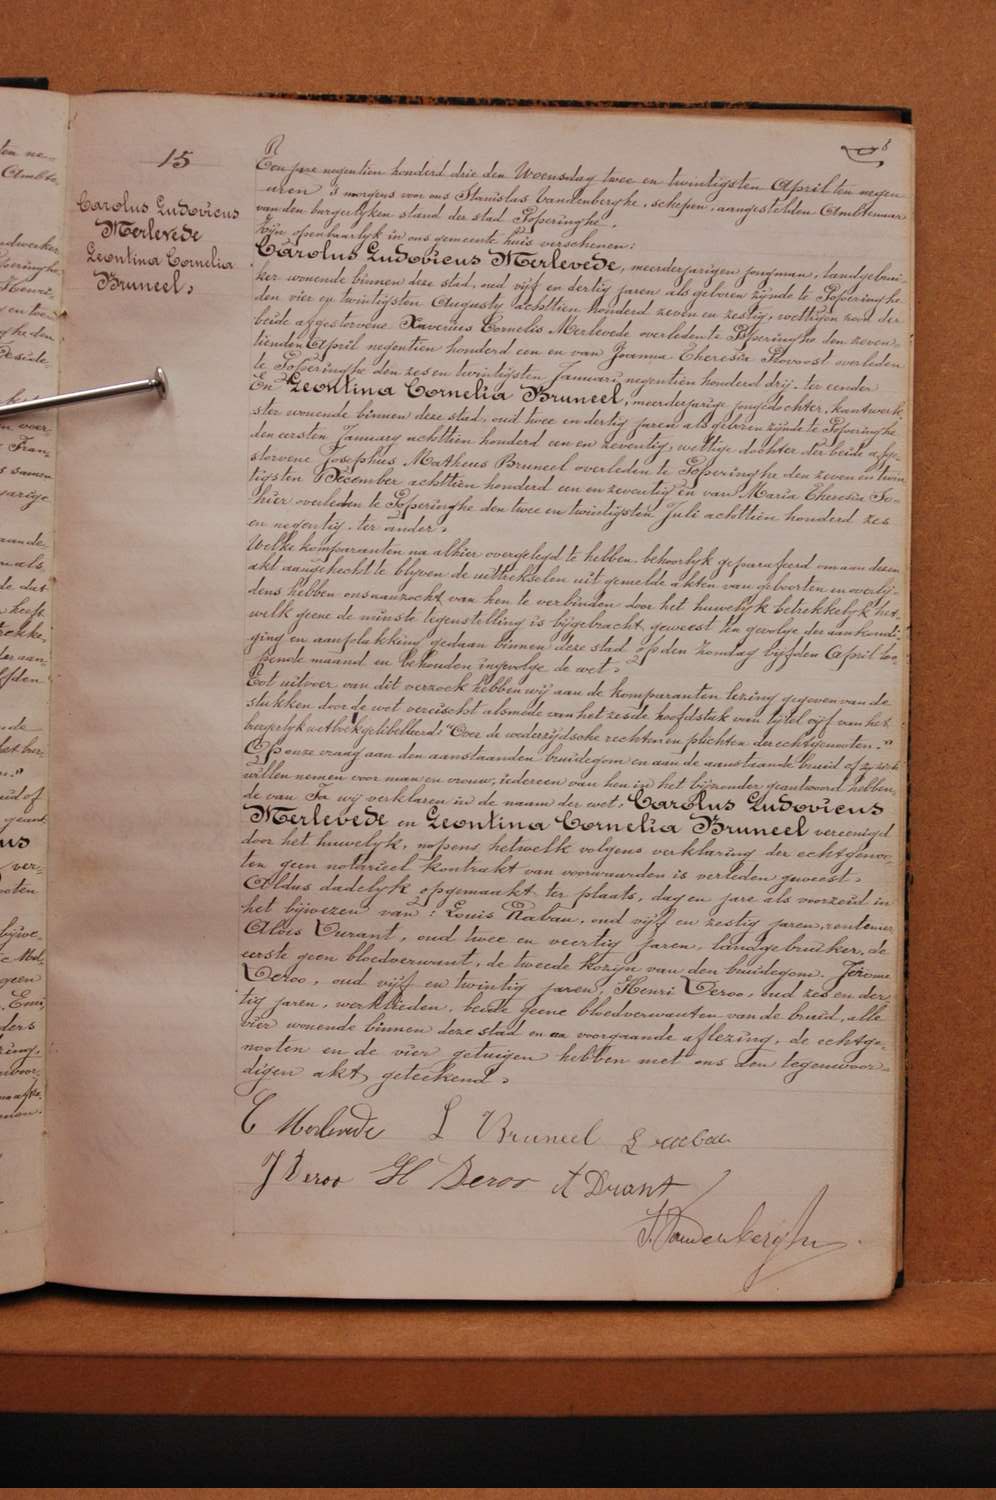 15
8
Carolus Ludovicus
Merlevede
Leontina Cornelia
Bruneel.
Ten jare negentien honderd drie den Woensdag twee en twintigsten April ten negen
uren 's morgens voor ons Stanislas Vandenberghe, schepen, aangestelden Ambtenaar
van den burgerlyken stand der stad Poperinghe,
zijn openbaarlyk in ons gemeente huis verschenen:
Carolus Ludovicus Merlevede, meerderjarigen jongman, landgebrui-
ker wonende binnen deze stad, oud vijf en dertig jaren als geboren zijnde te Poperinghe
den vier en twintigsten Augusty achttien honderd zeven en zestig, wettigen zoon der
beide afgestorvene Xaverius Cornelis Merlevede overleden te Poperinghe den zeven-
tienden April negentien honderd een en van Joanna Theresia Provoost overleden
te Poperinghe den zes en twintigsten Januari negentien honderd drij. ter eender
En Leontina Cornelia Bruneel, meerderjarige jongedochter, kantwerk-
ster wonende binnen deze stad, oud twee en dertig jaren als geboren zijnde te Poperinghe
den eersten January achttien honderd een en zeventig, wettige dochter der beide afge-
storvene Josephus Matheus Bruneel overleden te Poperinghe den zeven en twin-
tigsten December achttien honderd een en zeventig en van Maria Theresia So-
hier overleden te Poperinghe den twee en twintigsten Juli achttien honderd zes
en negentig. ter ander.
Welke komparanten na alhier overgelegd te hebben behoorlyk geparafeerd om aan dezen
akt aangehecht te blyven de uittrekselen uit gemelde akten van geboorten en overlij-
dens hebben ons aanzocht van hen te verbinden door het huwelyk betrekkelyk het
welk geene de minste tegenstelling is bijgebracht geweest ten gevolge der aankondi-
ging en aanplakking gedaan binnen deze stad op den Zondag vyfden April loo-
pende maand en behouden ingevolge de wet.
Tot uitvoer van dit verzoek hebben wij aan de komparanten lezing gegeven van de
stukken door de wet vereischt alsmede van het zesde hoofdstuk van tytel vijf van het
burgerlyk wetboek gelibelleerd: "Over de wederzijdsche rechten en plichten der echtgenooten."
Op onze vraag aan den aanstaanden bruidegom en aan de aanstaande bruid of zy zich
willen nemen voor man en vrouw, iedereen van hen in het bijzonder geantwoord hebben-
de van Ja wij verklaren in de naam der wet: Carolus Ludovicus
Merlevede en Leontina Cornelia Bruneel vereenigd
door het huwelyk, nopens hetwelk volgens verklaring der echtgenoo-
ten geen notarieel kontrakt van voorwaarden is verleden geweest.
Aldus dadelyk opgemaakt ter plaats, dag en jare als voorzeid in
het bijwezen van: Louis Rabau, oud vijf en zestig jaren, rentenier,
Aloïs Durant, oud twee en veertig jaren, landgebruiker, de
eerste geen bloedverwant, de tweede kozijn van den bruidegom. Jerome
Deroo, oud vijf en twintig jaren, Henri Deroo, oud zes en der-
tig jaren, werklieden, beide geene bloedverwanten van de bruid, alle
vier wonende binnen deze stad en na voorgaande aflezing, de echtge-
nooten en de vier getuigen hebben met ons den tegenwoor-
digen akt geteekend.
C Merlevede L Bruneel L Rabau
J Deroo H Deroo A Durant
S. Vandenberghe